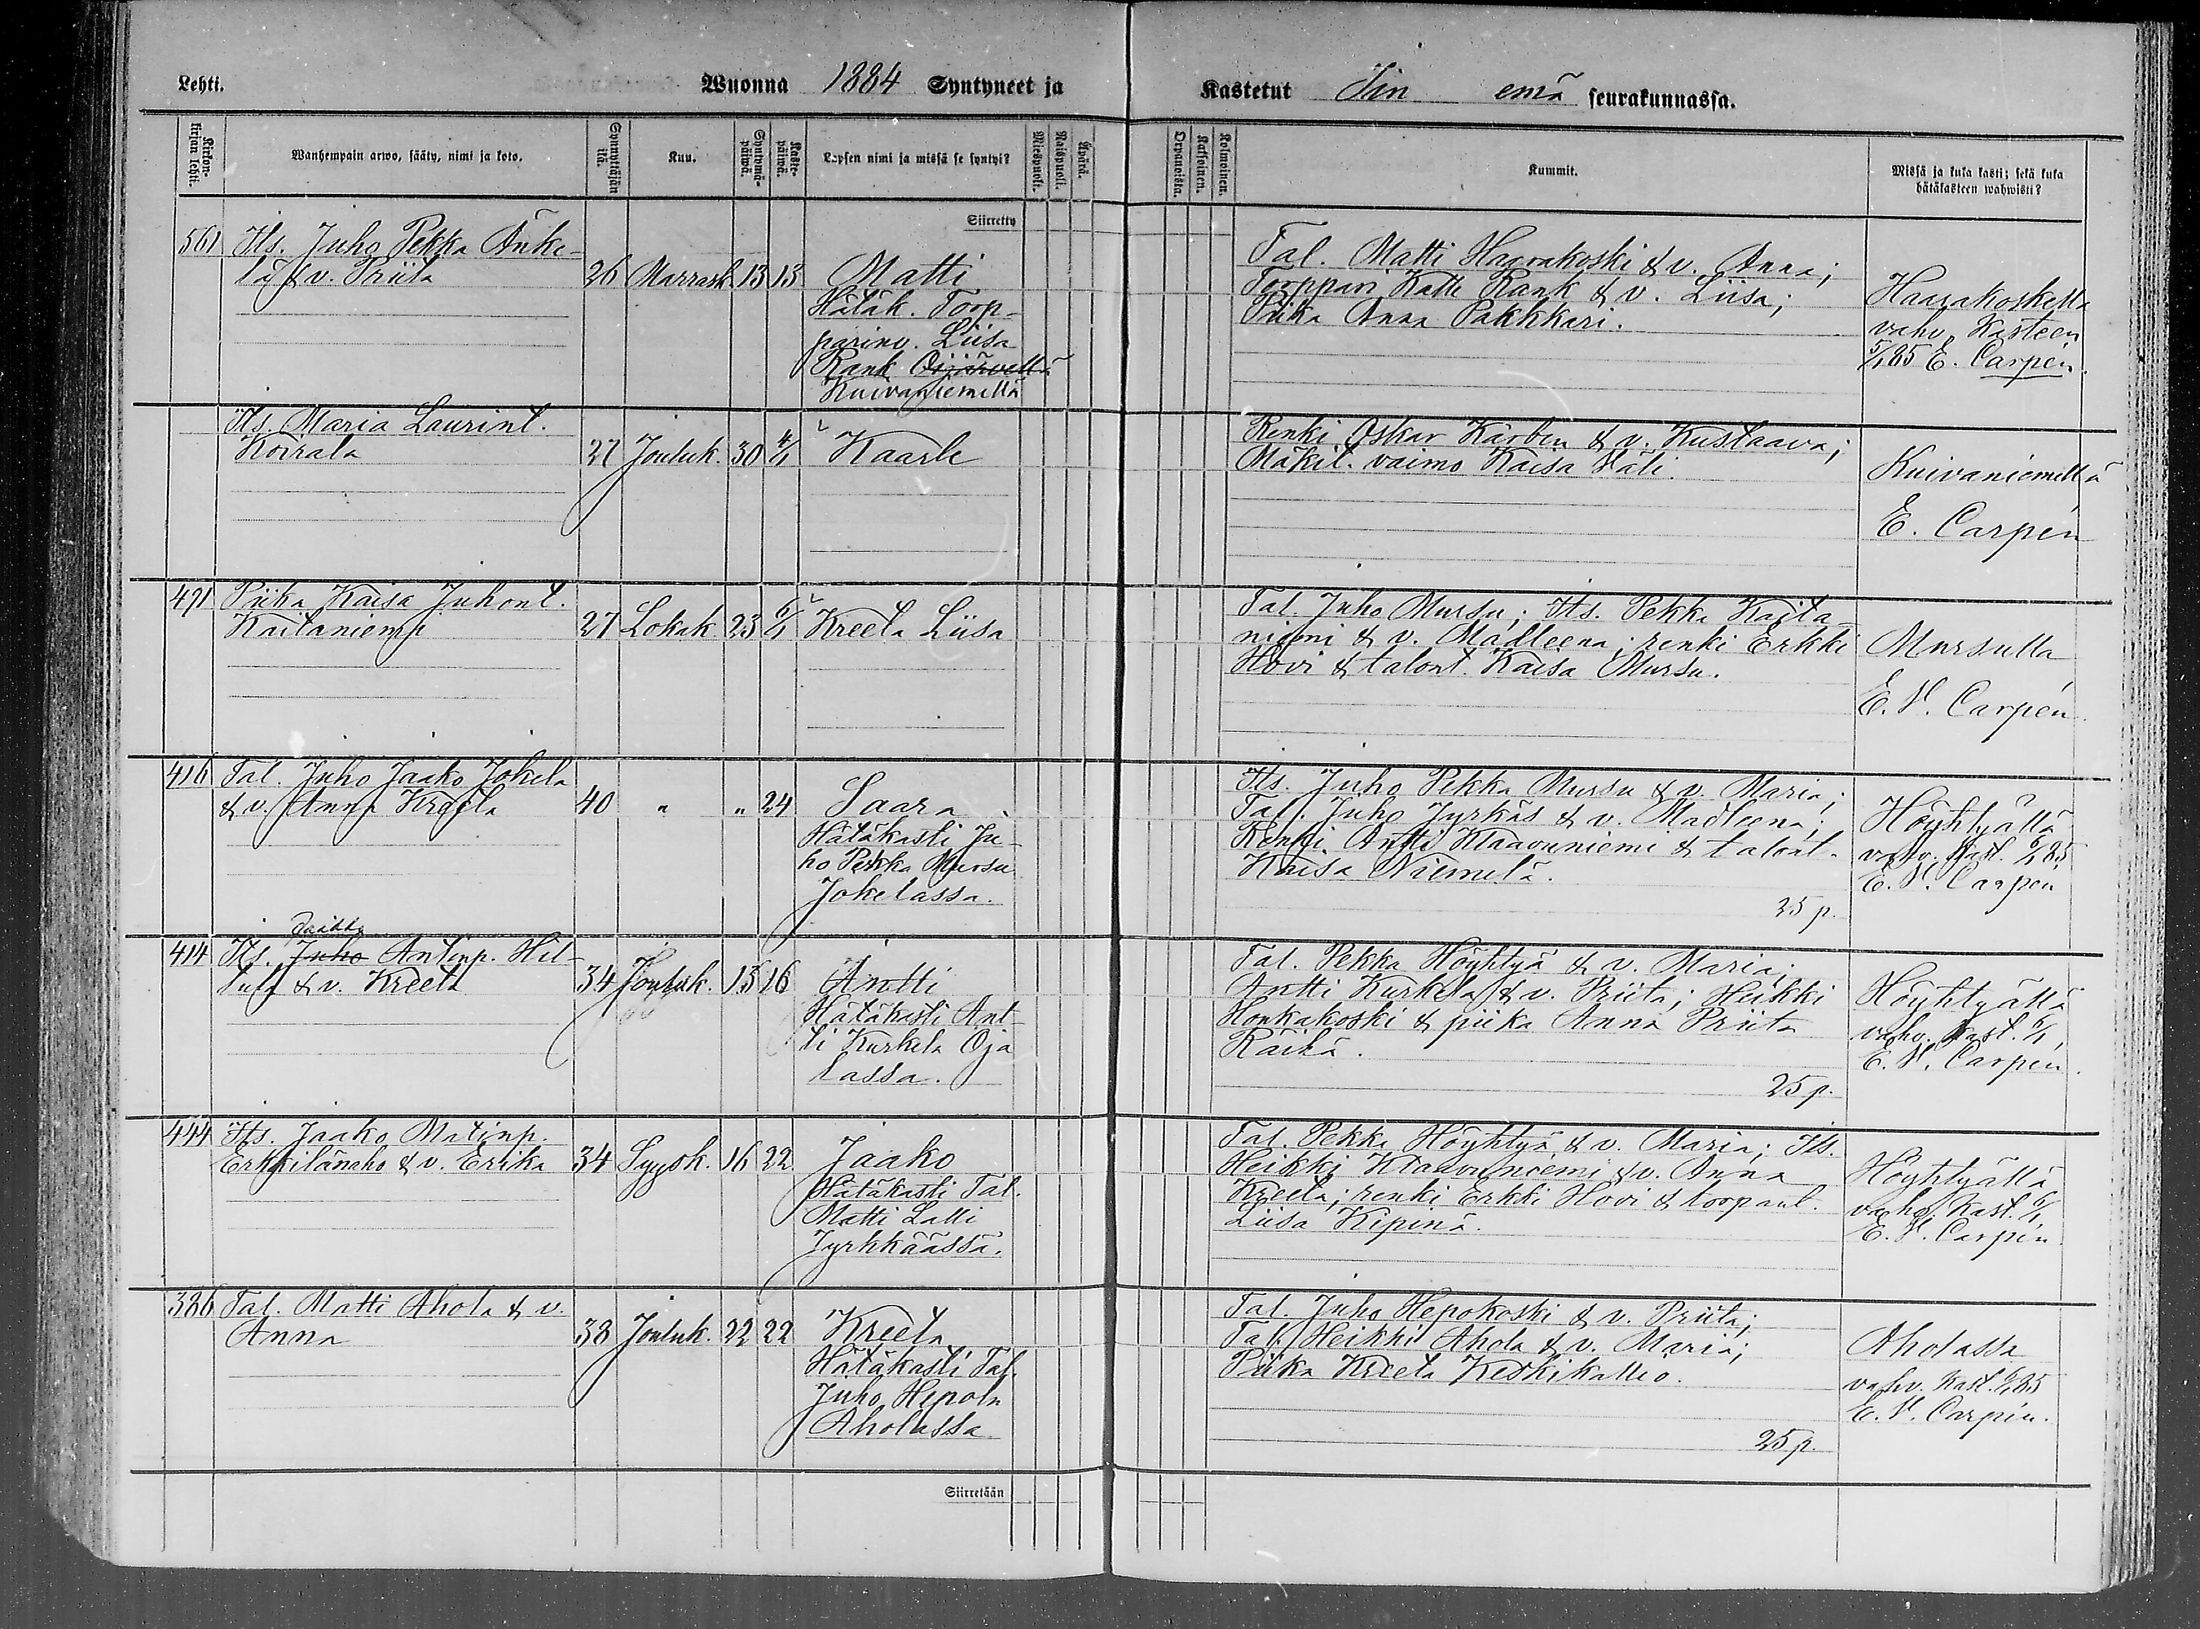 Lehti. Wuonna 1884 Syntyneet ja Kastetut Iin emä seurakunnassa.
Kirkonkirjan lehti. Wanhempain arwo, sääty, nimi ja koto. Synnyttäjän ikä. Kuu. Syntymäpäiwä. Kastepäiwä. Lapsen nimi ja missä se syntyi? Miespuoli. Naispuoli. Äpärä. Orpanoista. Kaksoinen. Kolmoinen. Kummit. Missä ja kuka kasti; sekä kuka hätäkasteen wahwisti?
Siirretty
561 Its. Juho Pekka Änke-
lä & v. Priita 26 Marrask. 13 13 Matti
Hätäk. Torp-
parinv. Liisa
Rank Oijärvellä
Kuivaniemellä
Tal. Matti Haarakoski & v. Anna;
Torppari Kalle Rank & v. Liisa;
Piika Anna Pakkari.
Haarakoskella
vahv. Kasteen
5/1 85 E. Carpén.
Its. Maria Laurint.
Koirala 27 Jouluk. 30 4/1 Kaarle
Renki Oskar Karben & v. Kustaava;
Mäkit. vaimo Kaisa Häti.
Kuivaniemellä
E. Carpén
491 Piika Kaisa Juhont.
Kaitaniemi 27 Lokak 23 6/1 Kreeta Liisa
Tal. Juho Mursu; Its. Pekka Kaita-
niemi & v. Madleena; renki Erkki
Hovi & talont. Kaisa Mursu.
Mursulla
E. V. Carpén
416 Tal. Juho Jaako Jokela
& v. Anna Kreeta 40 " " 24 Saara
Hätäkasti Ju-
ho Pekka Mursu
Jokelassa.
Its. Juho Pekka Mursu & v. Maria;
Tal. Juho Jyrkäs & v. Madleena;
Renki Antti Klaavuniemi & talont.
Kaisa Niemelä.
25 p.
Höyhtyällä
vahv. Kast. 6/1 85
E. V. Carpén
414 Its. Juho Antinp. Hil-
tula & v. Kreeta 34 Jouluk. 13 16 Antti
Hätäkasti Ant-
ti Kurkela Oja
lassa.
Tal. Pekka Höyhtyä & v. Maria;
Antti Kurkela & v. Priita; Heikki
Honkakoski & piika Anna Priita
25 p.
Höyhtyällä
vahv. Kast. 6/1,
E. V. Carpén.
444 Its. Jaako Matinp.
Erkkilänaho & v. Erika 34 Syysk. 16 22 Jaako
Hätäkasti Tal.
Matti Lalli
Jyrkkäässä.
Tal. Pekka Höyhtyä & v. Maria; Its.
Heikki Klaavuniemi & v. Anna
Kreeta; renki Erkki Hovi & torpant.
Liisa Kipinä.
Höyhtyällä
vahv. Kast. 6/1,
E. V. Carpén
386 Tal. Matti Ahola & v.
Anna 38 Jouluk. 22 22 Kreeta
Hätäkasti Tal.
Juho Hepola
Aholassa
Tal. Juho Hepokoski & v. Priita;
Tal. Heikki Ahola & v. Maria;
Piika Kreeta Keskikallio.
25 p.
Aholassa
vahv. Kast. 6/1 85
E. V. Carpén.
Siirretään